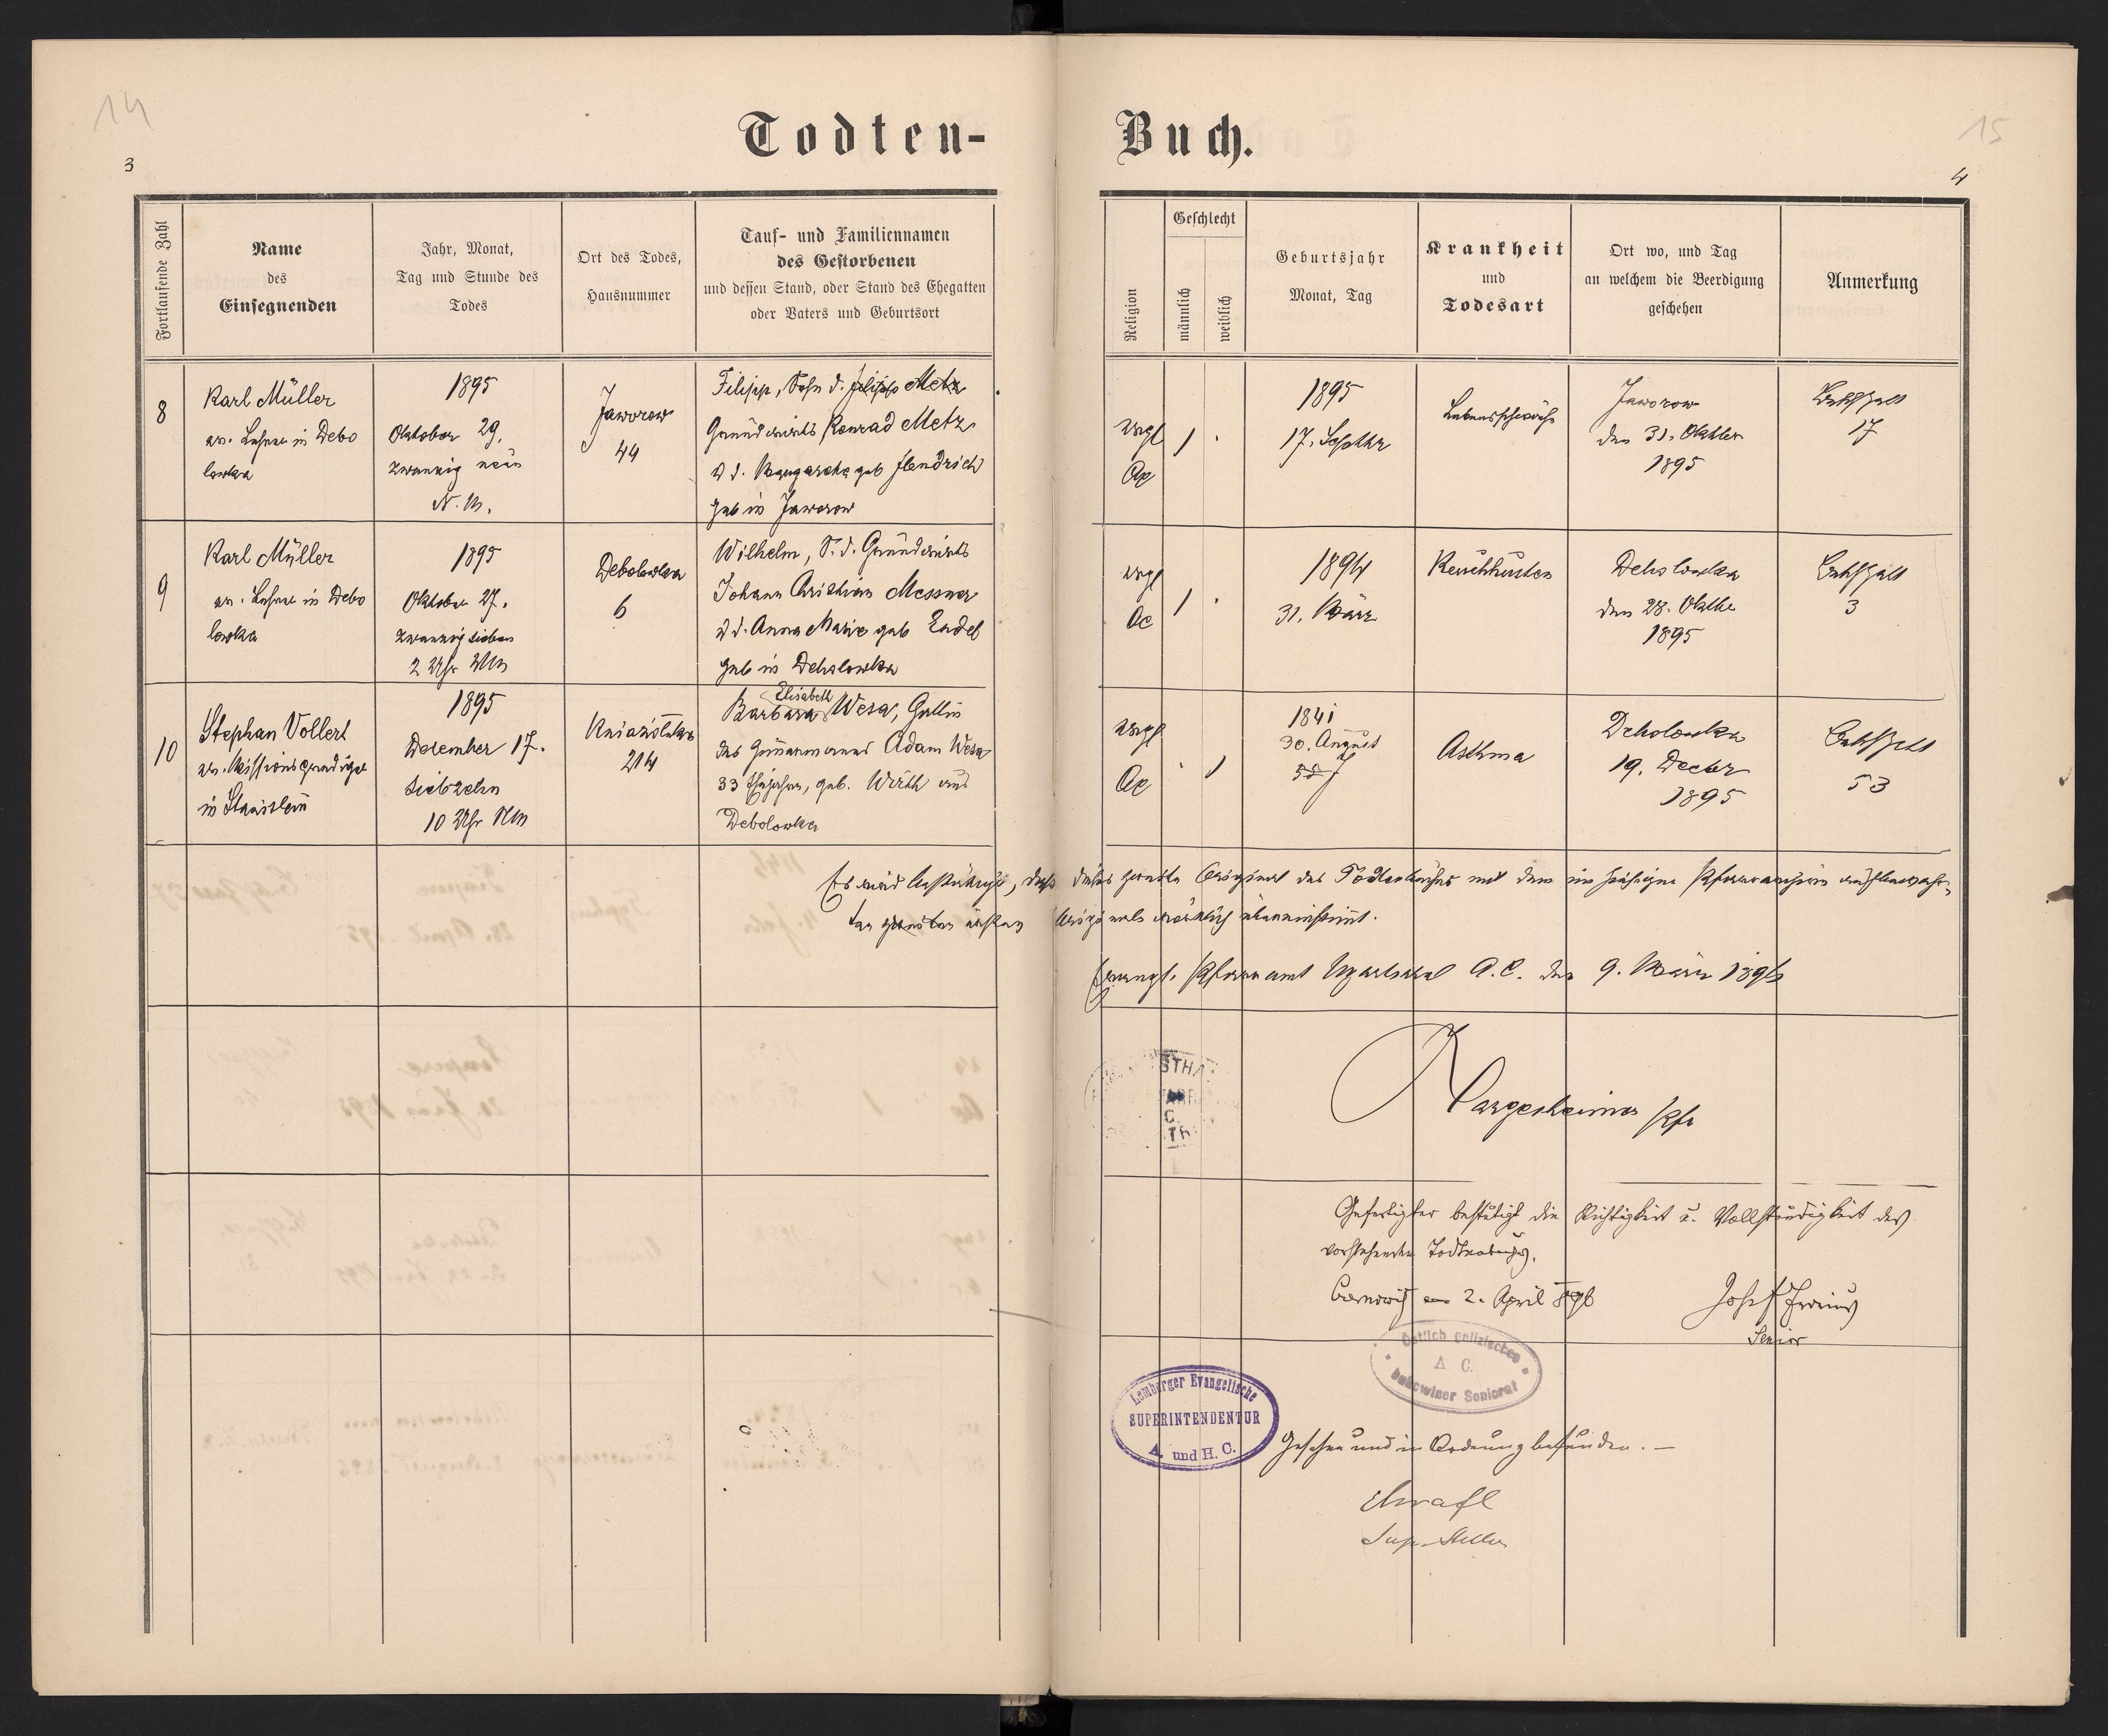 14
3
Todten-
Fortlaufende Zahl
Name
des
Einsegnenden
Jahr, Monat,
Tag und Stunde des
Todes
Ort des Todes,
Hausnummer
Tauf- und Familiennamen
des Gestorbenen
und dessen Stand, oder Stand des Ehegatten
oder Vaters und Geburtsort
8
Karl Müller
ev. Lehrer in Debo
lowka
1895
Oktober 29.
zwanzig neun
N. M.
Jaworow
44
Filipp, Sohn d. Filipp Metz
Grundwirts Konrad Metz
u d. Margarethe geb Hendrich
geb in Jaworow
9
Karl Müller
ev. Lehrer in Debo
lowka
1895
Oktober 27.
zwanzig sieben
2 Uhr
Debolowka
6
Wilhelm, S. d. Grundwirts
Johann Christian Messner
u d. Anna Marie geb
geb in Debolowka
10
Stephan Vollert
ev. Missionsprediger
in Stanislau
1895
Dezember 17.
siebzehn
10 Uhr
214
Elisabeth
Barbara Wesa, Gattin
des Adam Wesa
33 geb. Wirth aus
Debolowka
15
4
Buch.
Religion
Geschlecht
männlich
weiblich
Geburtsjahr
Monat, Tag
Krankheit
und
Todesart
Ort wo, und Tag
an welchem die Beerdigung
geschehen
Anmerkung
evgl
AC
1
1895
17. Septbr
Lebensschwäche
Jaworow
den 31. Oktober
1895
17
evgl
AC
1
1894
31. März
Keuchhusten
Debolowka
den 28. Oktbr
1895
3
evgl
AC
1
1841
30. August
Asthma
Debolowka
19. Decbr
1895
53
Es wird bestätigt, dass dieses zweite Original des Todtenbuches mit dem im hiesigen Pfarrarchiv aufbewahr-
ten ersten Originale wörtlich übereinstimmt.
Evangl. Pfarramt Ugartsthal A.C. den 9. März 1896
Pfr
Gefertigter bestätigt die Richtigkeit u. Vollständigkeit des
vorstehenden Todtenbuches.
Czernowitz am 2. April 896
Josef
Senior
Östlich galizisches
A C.
bukowiner Seniorat
Lemberger Evangelische
SUPERINTENDENTUR
A. und H. C.
Gesehen und in Ordnung befunden. —